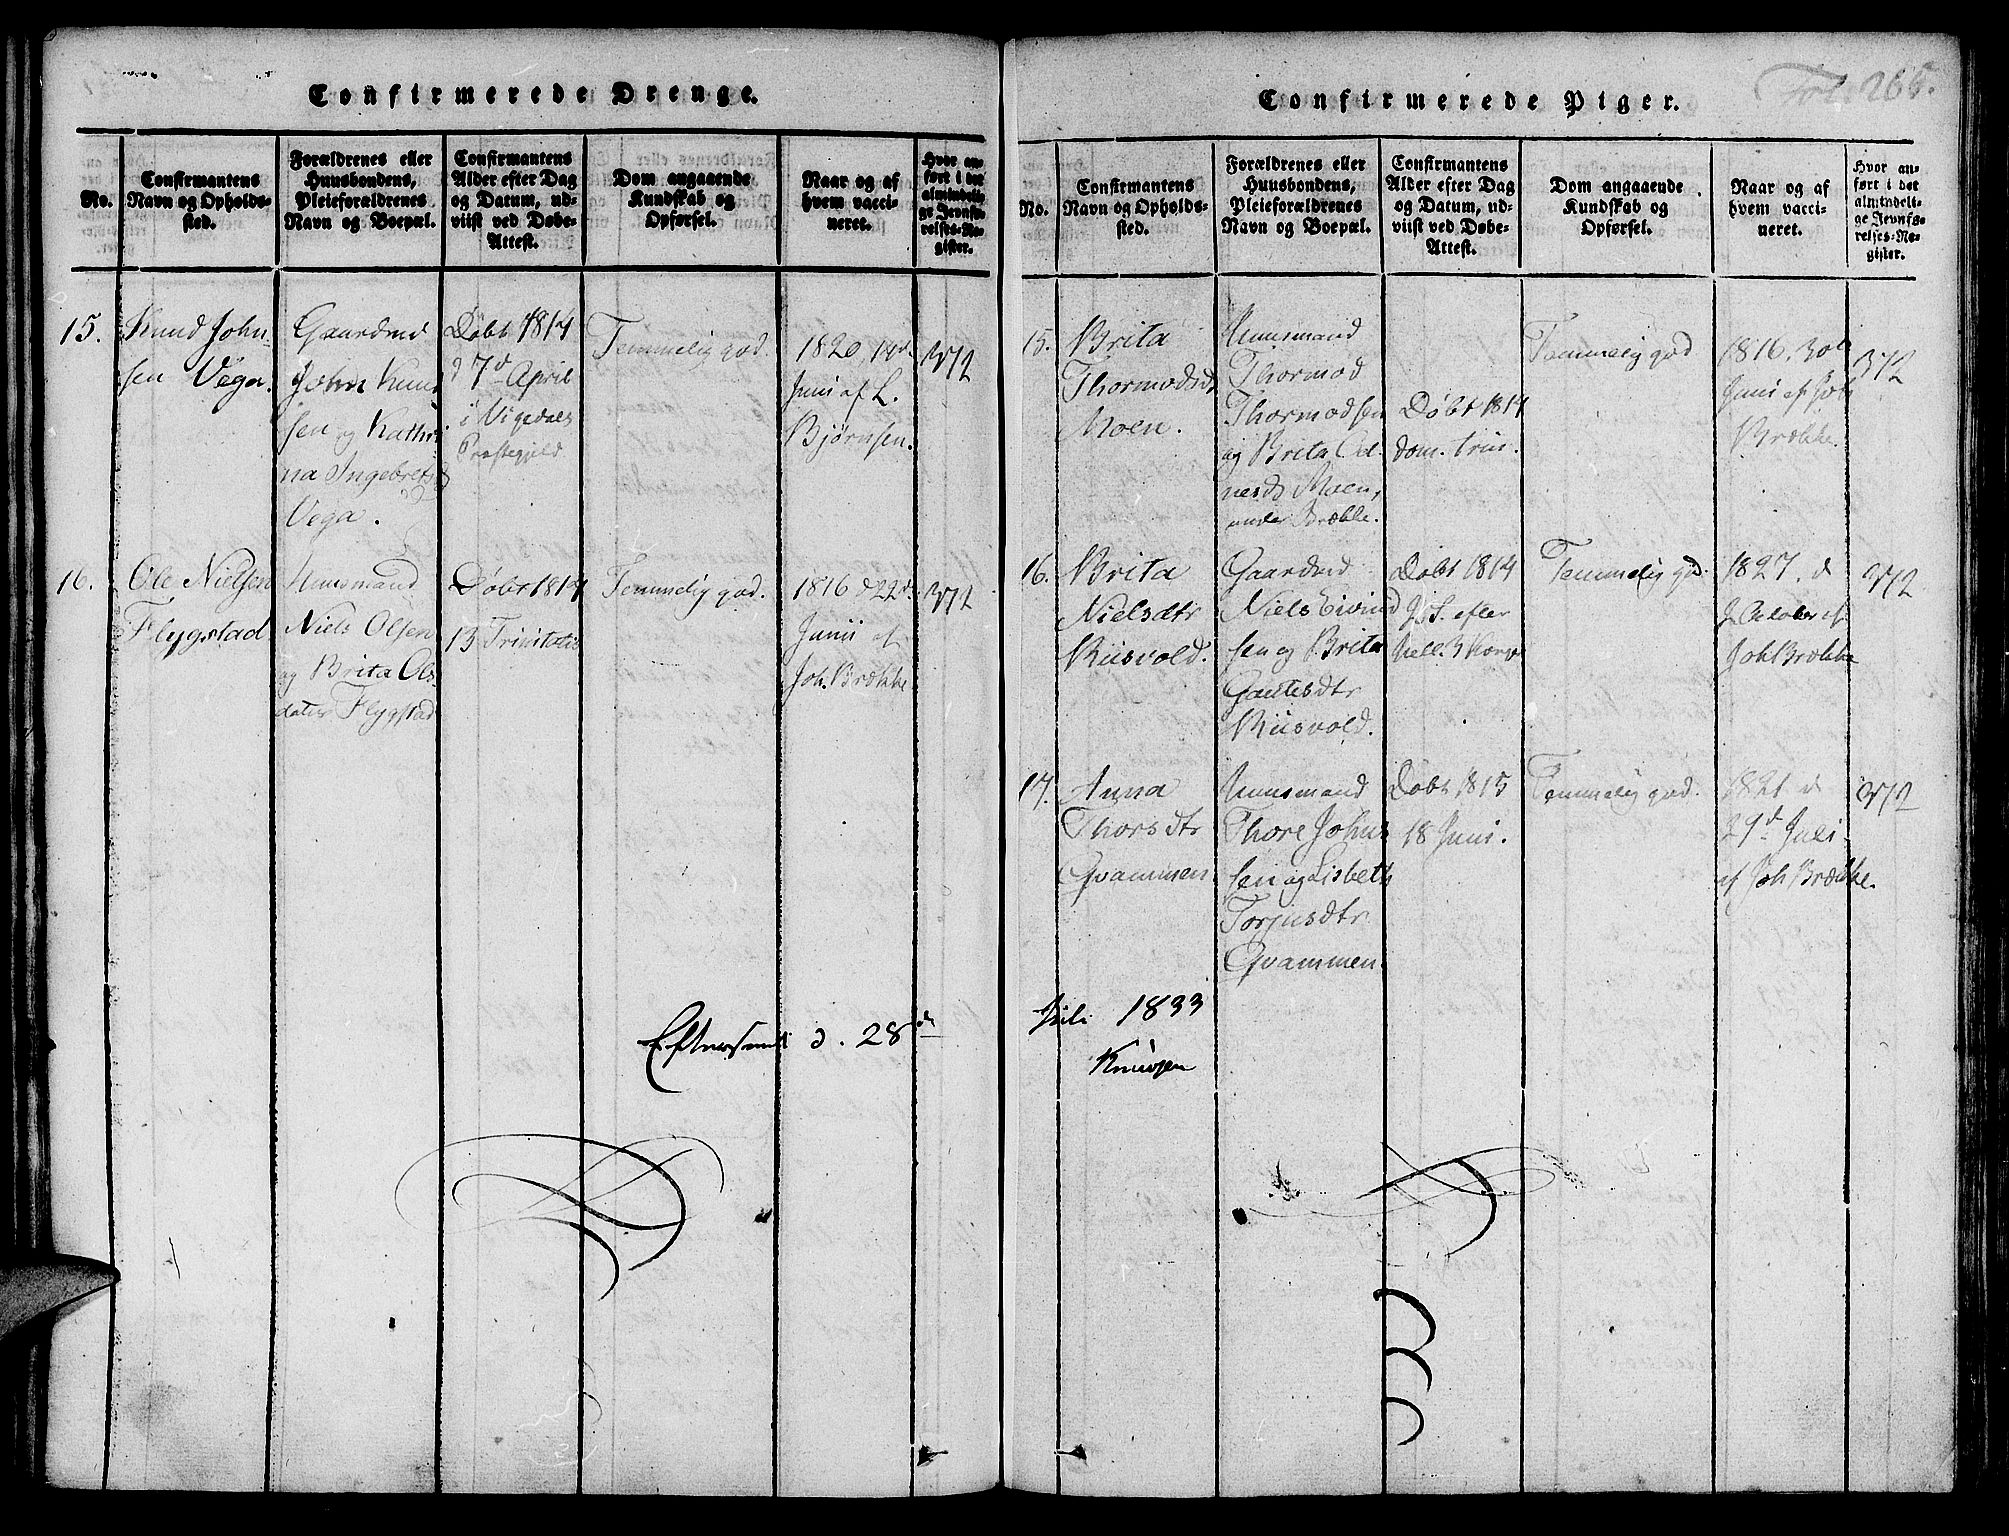 Confirmerede Drenge.
No.
Confirmantens
Navn og Opholds-
sted.
Forældrenes eller
Huusbondens,
Pleieforældrenes
Navn og Boepæl.
Confirmantens
Alder efter Dag
og Datum, ud-
viist ved Døbe-
Attest.
Dom angaaende
Kundskab og
Opførsel.
Naar og af
hvem vacci-
neret.
Hvor an-
ført i det
almindeli-
ge Jevnfø-
relses-Re-
gister.
15.
Knud John-
sen Vega.
Gaardmd
John Knu
sen og Kathri
na Ingebretsd
Vega.
Døbt 1814
7d April
i Vigedals
Præstegjeld
Temmelig god.
1820, 14d.
Junii af L.
Bjørnsen.
372
16.
Ole Nielsen
Flygstad
Huusmand
Niels Olsen
og Brita Ols
datter Flygstad
Døbt 1814
13 Trinitatis
Temmelig god.
1816 d 22d.
Junii af
Joh. Brække
372
Eftersendt d. 28de
Confirmerede Piger.
Fol. 265.
No.
Confirmantens
Navn og Opholds-
sted.
Forældrenes eller
Huusbondens,
Pleieforældrenes
Navn og Boepæl.
Confirmantens
Alder efter Dag
og Datum, ud-
viist ved Døbe-
Attest.
Dom angaaende
Kundskab og
Opførsel.
Naar og af
hvem vacci-
neret.
Hvor an-
ført i det
almindeli-
ge Jevnfø-
relses-Re-
gister.
15.
Brita
Thormodsdt
Moen.
Huusmand
Thormod
Thormodsen
og Brita Od
nesd. Moen,
under Brække.
Døbt 1814
dom. trin.
Temmelig god
1816. 30te
Junii af Joh
Brække.
372
16.
Brita
Nielsdtr
Riisvold.
Gaardmd
Niels Eivind
sen og Brita
Gautesdtr
Riisvold.
Døbt 1814
S. efter
hell. 3 Konge
Temmelig god.
1827. d
October af
Joh Brække
372
17.
Anna
Thorsdtr
Qvammen
Huusmand
Thore Johns
sen og Lisbeth
Torjusdtr
Qvammen.
Døbt 1815
18 Juni.
Temmelig god.
1821 d
29d Juli
af Joh Brække.
372
Juli 1833